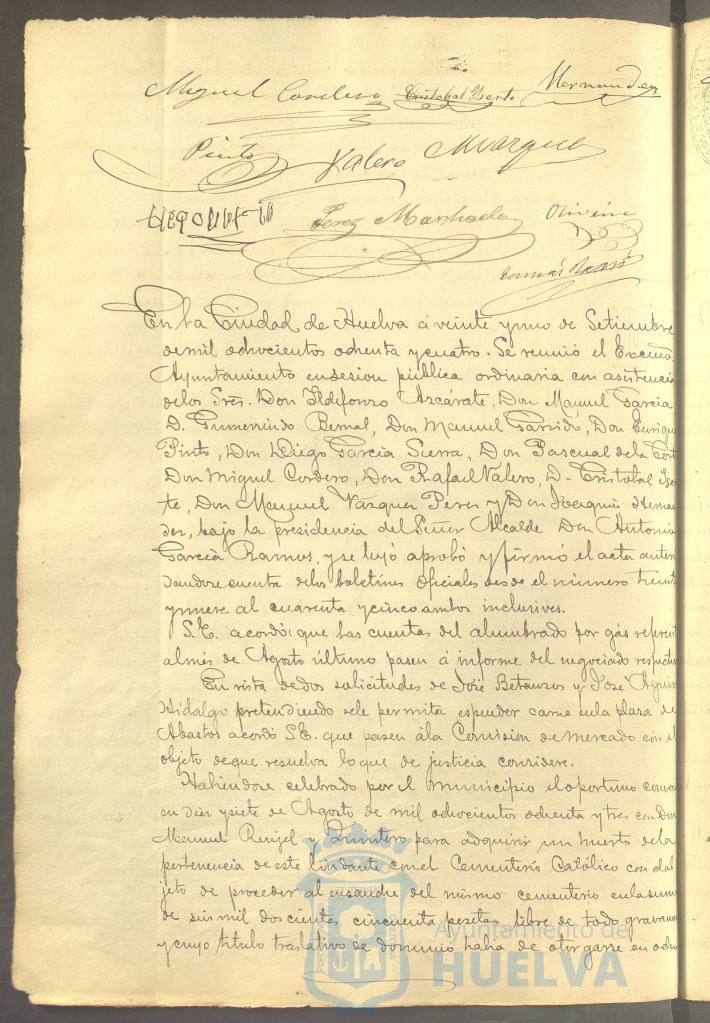 Miguel Cordero Cristobal Iserte Hernandez
Pinto Valero Marquez
Perez Machado Oliveira
En la Ciudad de Huelva á veinte y uno de Setiembre
de mil ochocientos ochenta y cuatro. Se reunió el Excmo.
Ayuntamiento en sesion pública ordinaria con asistencia
de los Sres. Don Ildefonso Azcárate, Don Manuel Garcia
D. Gumersindo Bernal, Don Manuel Garrido, Don Enrique
Pinto, Don Diego Garcia Sierra, Don Pascual de la Cort
Don Miguel Cordero, Don Rafael Valero, D. Cristobal Iser
te, Don Manuel Vazquez Perez y Don Joaquin Hernan
dez, bajo la presidencia del Señor Alcalde Don Antonio
Garcia Ramos, y se leyó aprobó y firmó el acta anteri
dandose cuenta de los boletines oficiales desde el número treint
y nueve al cuarenta y cinco ambos inclusives.
S.E. acordó: que las cuentas del alumbrado por gás referent
al més de Agosto último pasen á informe del negociado respectiv
En vista de dos solicitudes de José Betanzos y José
Hidalgo pretendiendo se le permita espender carne en la plaza de
Abastos acordó S.E. que pasen á la Comision de mercado con el
objeto de que resuelva lo que de justicia considere.
Habiendose celebrado por el Municipio el oportuno
en diez y siete de Agosto de mil ochocientos ochenta y tres con Don
Manuel Rengel y Quintero para adquirir un huerto de la
pertenencia de este lindante con el Cementerio Católico con el ob
jeto de proceder al ensanche del mismo cementerio en la suma
de seis mil doscientas cincuenta pesetas libre de todo gravamen
y cuyo titulo traslativo de dominio habia de otorgarse en ocho
Ayuntamiento de
HUELVA